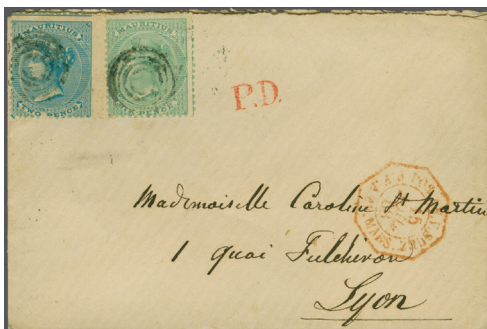 MAURITIUS
TWO PENCE
MAURITIUS
PENCE
P.D.
Mademoiselle Caroline St Martin
1 quai Fulcheron
Lyon